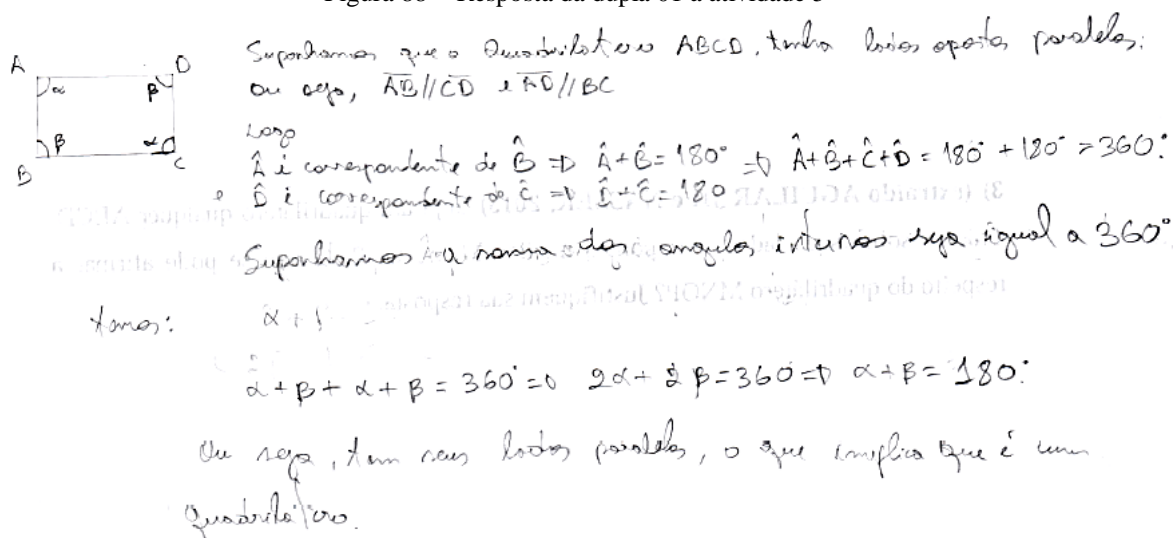 Suponhamos que o Quadrilatero ABCD, tenha lados opostos paralelos;
A D
α β
ou seja, AB//CD e AD//BC
Logo
β α
B C
Â é correspondente de B̂ => Â+B̂=180° => Â+B̂+Ĉ+D̂ = 180°+180°=360°.
e D̂ é correspondente de Ĉ => D̂+Ĉ=180
Suponhamos a soma dos angulos internos seja igual a 360°
temos: α +
α+β+α+β=360°=> 2α+2β=360=> α+β=180°.
Ou seja, tem seus lados paralelos, o que implica que é um
quadrilátero.